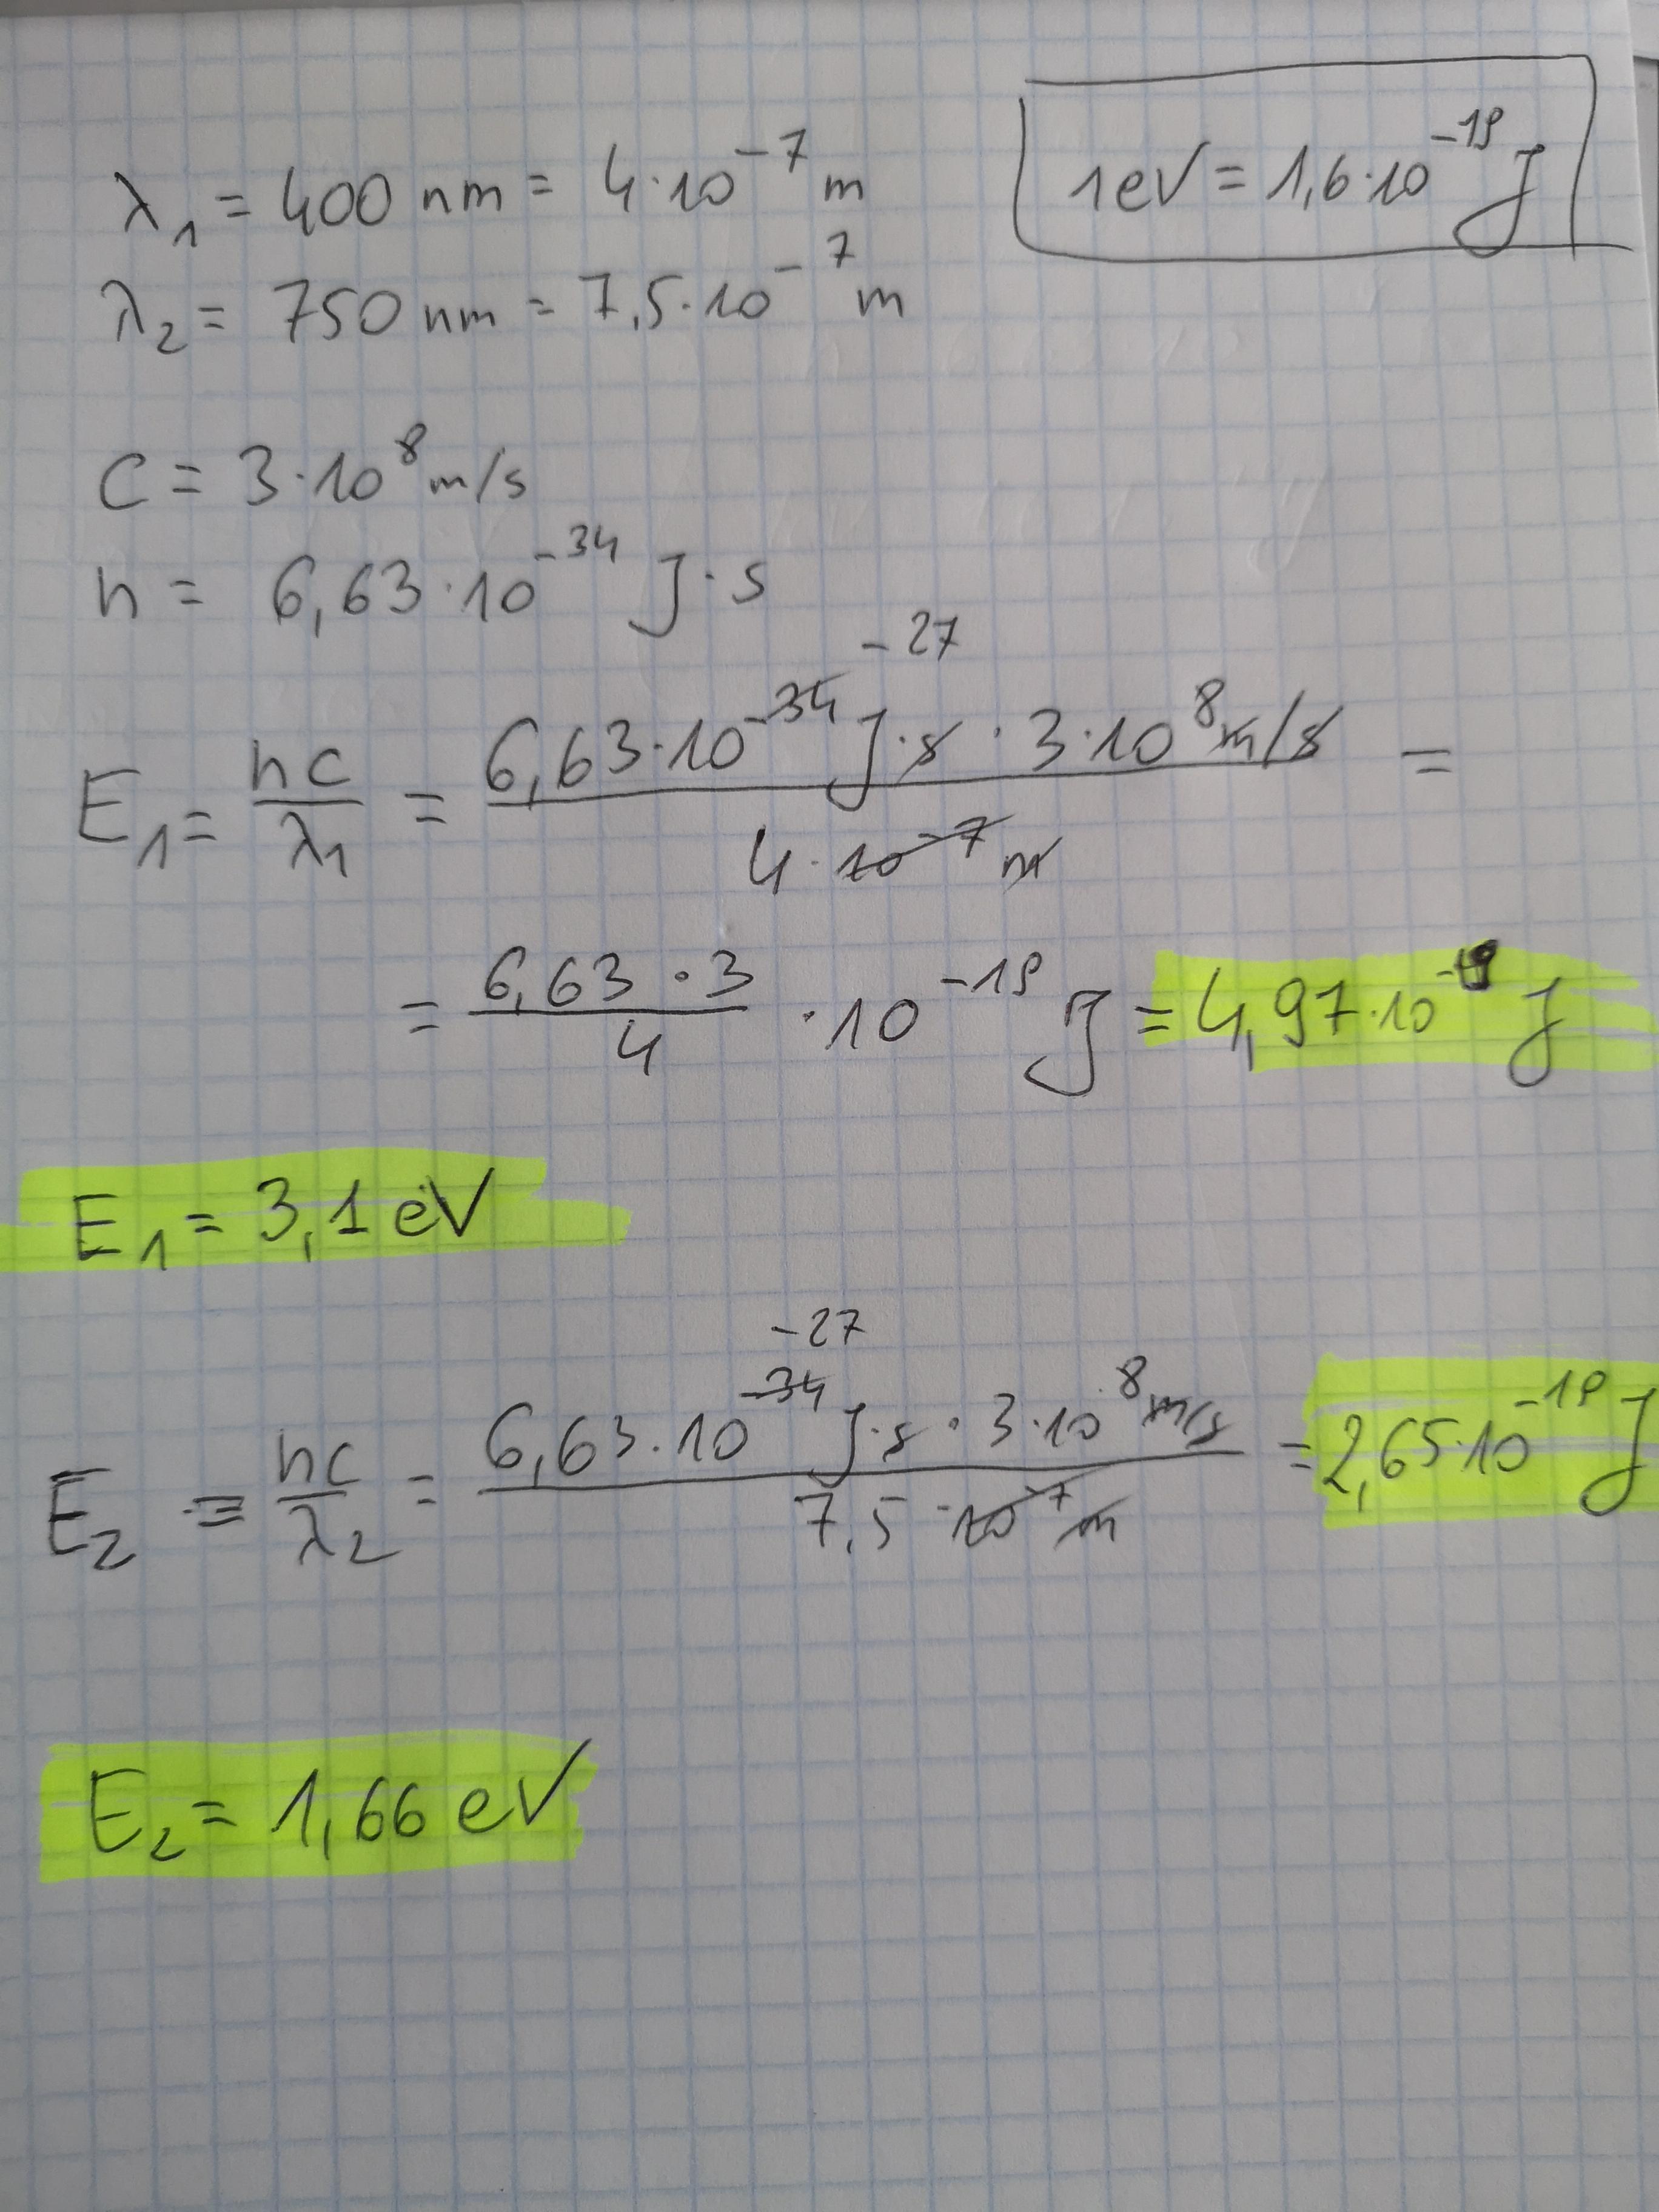 λ₁ = 400 nm = 4·10⁻⁷ m
1eV = 1,6·10⁻¹⁹ J
λ₂ = 750 nm = 7,5·10⁻⁷ m
c = 3·10⁸ m/s
h = 6,63·10⁻³⁴ J·s
-27
E₁ = hc/λ₁ = 6,63·10⁻³⁴ J·s · 3·10⁸ m/s / 4·10⁻⁷ m =
= 6,63·3/4 ·10⁻¹⁹ J = 4,97·10⁻¹⁹ J
E₁ = 3,1 eV
-27
E₂ = hc/λ₂ = 6,63·10⁻³⁴ J·s · 3·10⁸ m/s / 7,5·10⁻⁷ m = 2,65·10⁻¹⁹ J
E₂ = 1,66 eV